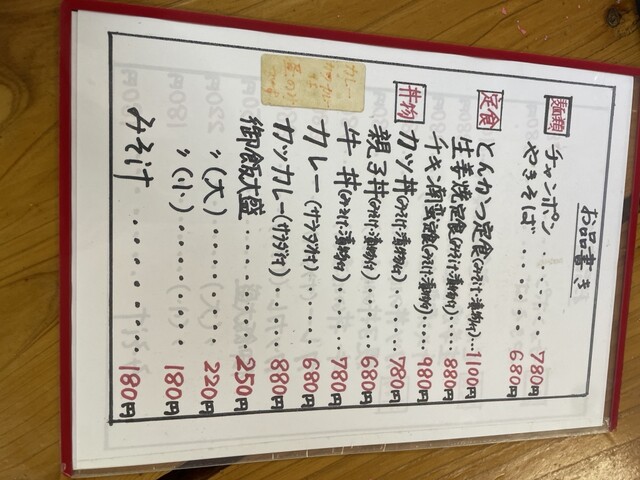 お品書き
麺類
チャンポン・・・・・・780円
やきそば・・・・・・680円
定食
とんかつ定食(みそ汁・漬物付)・・・1100円
生姜焼定食(みそ汁・漬物付)・・・・880円
チキン南蛮定食(みそ汁・漬物付)・・・・980円
丼物
カツ丼(みそ汁・漬物付)・・・・・780円
親子丼(みそ汁・漬物付)・・・・・680円
牛丼(みそ汁・漬物付)・・・・・780円
カレー(サラダ付)・・・・・680円
カツカレー(サラダ付)・・・・・880円
御飯大盛・・・・・250円
〃(大)・・・・・220円
〃(小)・・・・・180円
みそ汁・・・・・・180円